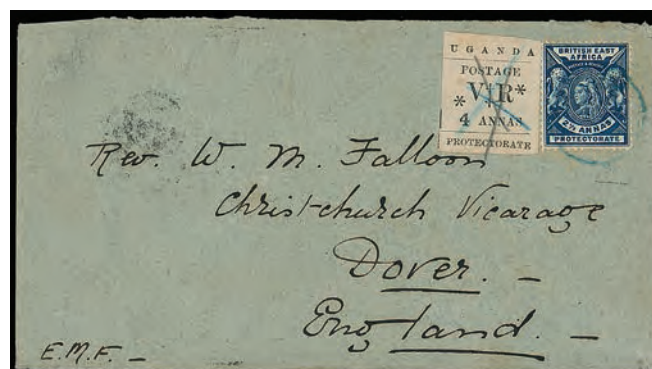 UGANDA
POSTAGE
*V†R*
4 ANNAS
PROTECTORATE
BRITISH EAST
AFRICA
2½ ANNAS
PROTECTORATE
Rev. W. M. Falloon
Christ-church Vicarage
Dover. -
England. -
E.M.F. -